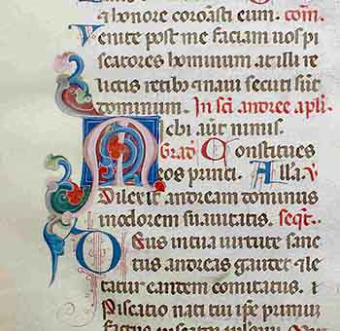 & honore coronasti eum. com̄.
Venite post me faciam uos pi
scatores hominum. at illi re
lictis retib; & naui secuti sūt
dominum. In sc̄i andree ap̄li.
Michi aūt nimis.
Grad̄ Constitues
eos princi. Alla. ℣
Dilexit andream dominus
in odorem suauitatis. seqt̄.
Deus in tua uirtute sanc
tus andreas gaudet & le
tatur eandem comitatus. i
Piscatio nati tui ip̄e primus